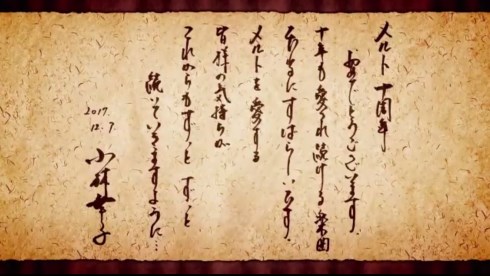 メルト 十周年
おめでとうございます。
十年も愛され続ける楽曲
すばらしいです。
メルトを愛する
皆様の気持ちが
これからもずっと ずっと
続いていきますように…
2017.
12.7.
小林幸子